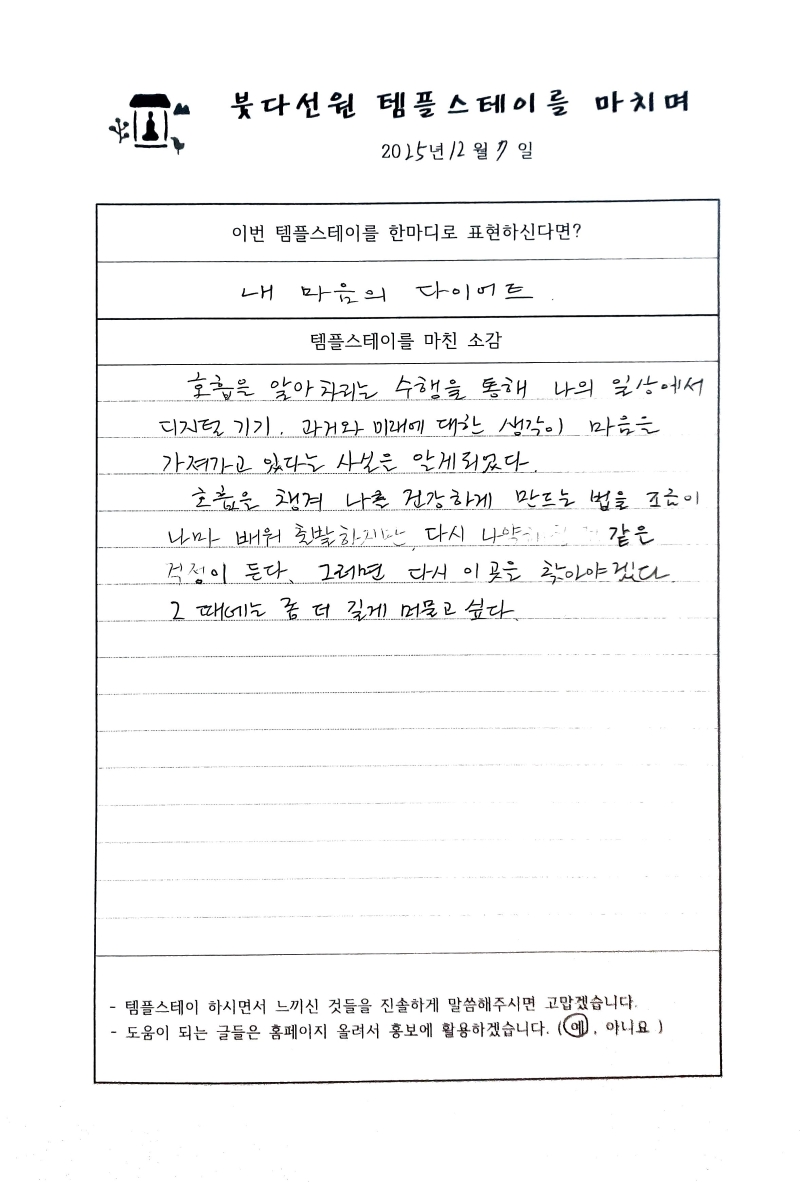 붓다선원 템플스테이를 마치며
2025년 12월 7일
이번 템플스테이를 한마디로 표현하신다면?
내 마음의 다이어트.
템플스테이를 마친 소감
호흡을 알아차리는 수행을 통해 나의 일상에서
디지털 기기. 과거와 미래에 대한 생각이 마음을
가져가고 있다는 사실을 알게되었다.
호흡을 챙겨 나를 건강하게 만드는 법을 조금이
나마 배워 출발하지만, 다시 같은
걱정이 든다. 그러면 다시 이곳을 찾아야겠다.
그 때에는 좀 더 길게 머물고 싶다.
- 템플스테이 하시면서 느끼신 것들을 진솔하게 말씀해주시면 고맙겠습니다.
- 도움이 되는 글들은 홈페이지 올려서 홍보에 활용하겠습니다. (예, 아니요 )